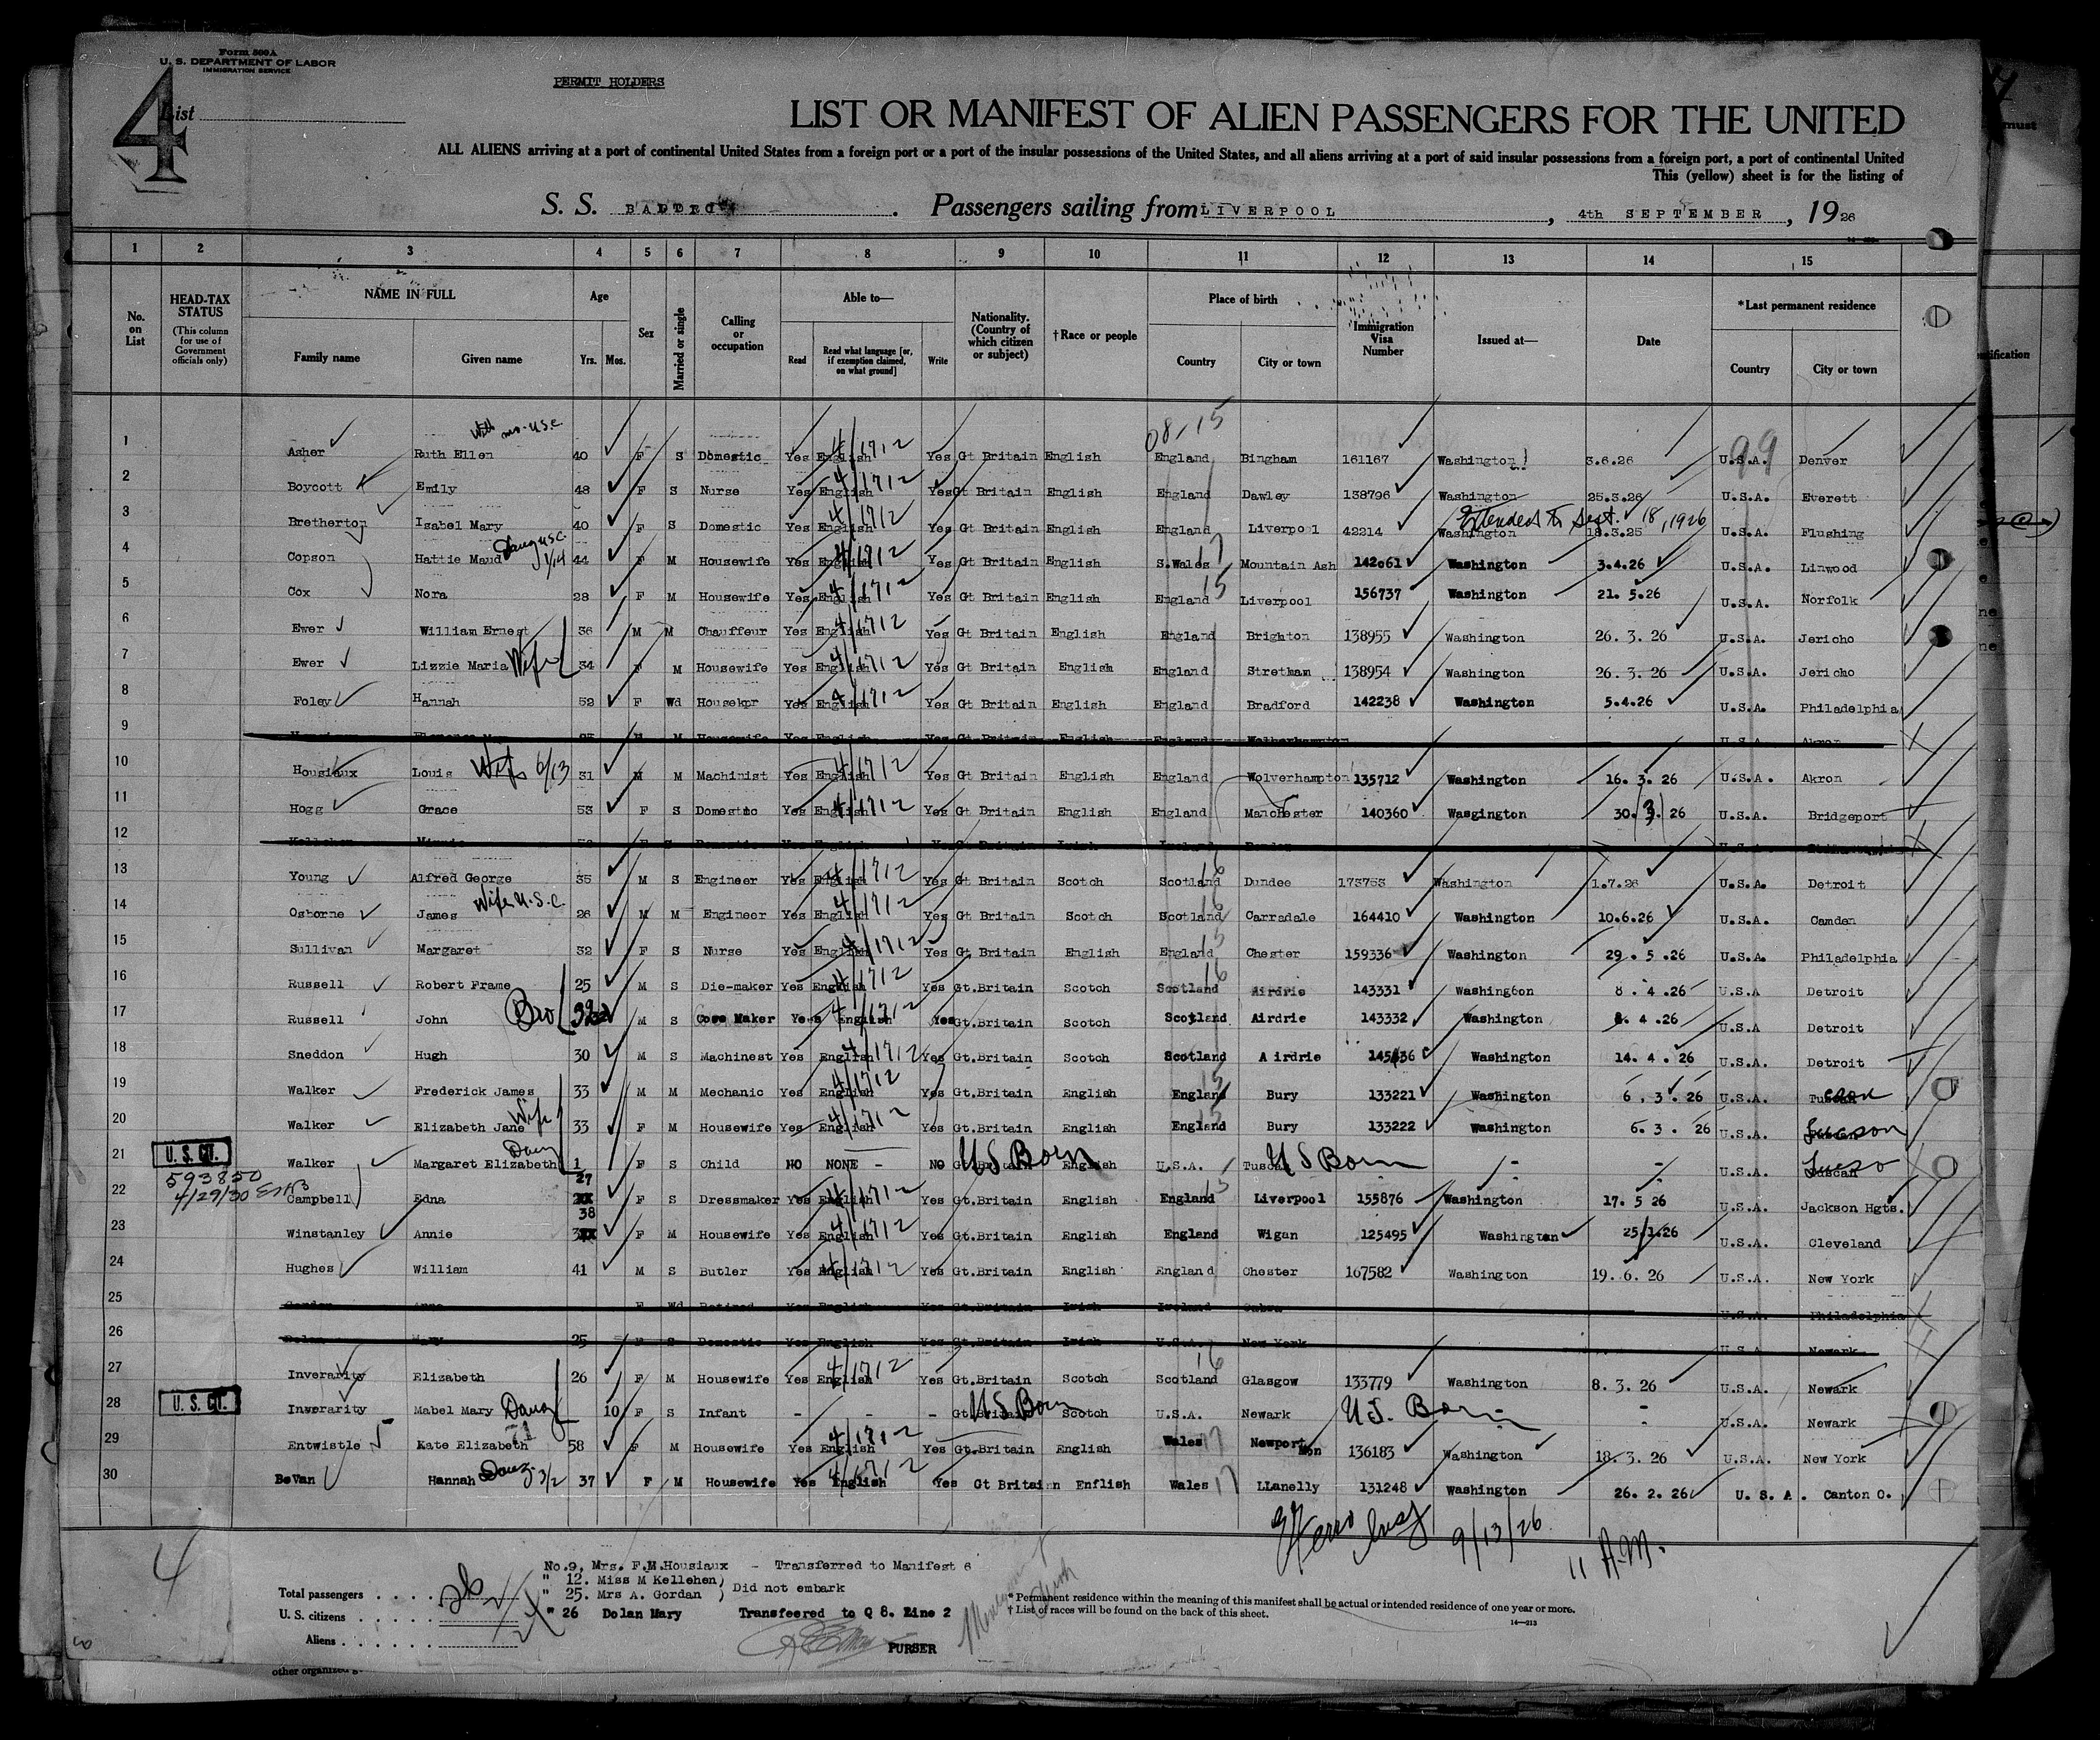 Form 500A
U. S. DEPARTMENT OF LABOR
IMMIGRATION SERVICE
PERMIT HOLDERS
4
List
LIST OR MANIFEST OF ALIEN PASSENGERS FOR THE UNITED
ALL ALIENS arriving at a port of continental United States from a foreign port or a port of the insular possessions of the United States, and all aliens arriving at a port of said insular possessions from a foreign port, a port of continental United
This (yellow) sheet is for the listing of
S. S. BALTIC. Passengers sailing from LIVERPOOL, 4th SEPTEMBER, 1926
1 2 3 4 5 6 7 8 9 10 11 12 13 14 15
No. on List
HEAD-TAX STATUS (This column for use of Government officials only)
NAME IN FULL
Family name Given name
Age
Yrs. Mos.
Sex
Married or single
Calling or occupation
Able to—
Read Read what language [or, if exemption claimed, on what ground] Write
Nationality. (Country of which citizen or subject)
†Race or people
Place of birth
Country City or town
Immigration Visa Number
Issued at—
Date
*Last permanent residence
Country City or town
With no. U.S.C. 08-15
1 Asher Ruth Ellen 40 F S Domestic Yes English 4/1712 Yes Gt Britain English England Bingham 161167 Washington 3.6.26 U.S.A. 99 Denver
2 Boycott Emily 48 F S Nurse Yes English 4/1712 Yes Gt Britain English England Dawley 138796 Washington 25.3.26 U.S.A. Everett
Extended to Sept. 18, 1926
3 Bretherton Isabel Mary 40 F S Domestic Yes English 4/1712 Yes Gt Britain English England Liverpool 42214 Washington 18.3.25 U.S.A. Flushing
4 Copson Hattie Maud Daug USC 1/14 44 F M Housewife Yes English 4/1712 Yes Gt Britain English S.Wales 17 Mountain Ash 142061 Washington 3.4.26 U.S.A. Linwood
5 Cox Nora 28 F M Housewife Yes English 4/1712 Yes Gt Britain English England 15 Liverpool 156737 Washington 21.5.26 U.S.A. Norfolk
6 Ewer William Ernest 36 M M Chauffeur Yes English 4/1712 Yes Gt Britain English England Brighton 138955 Washington 26.3.26 U.S.A. Jericho
7 Ewer Lizzie Maria Wife 34 F M Housewife Yes English 4/1712 Yes Gt Britain English England Stretham 138954 Washington 26.3.26 U.S.A. Jericho
8 Foley Hannah 52 F Wd Housekpr Yes English 4/1712 Yes Gt Britain English England Bradford 142238 Washington 5.4.26 U.S.A. Philadelphia
9 M Housewife Yes English Yes Gt Britain English England Wolverhampton U.S.A. Akron
10 Housiaux Louis Wife 6/13 31 M M Machinist Yes English 4/1712 Yes Gt Britain English England Wolverhampton 135712 Washington 16.3.26 U.S.A. Akron
11 Hogg Grace 53 F S Domestic Yes English 4/1712 Yes Gt Britain English England Manchester 140360 Wasgington 30.3.26 U.S.A. Bridgeport
12 Kellehen Minnie F S Domestic Yes English Yes Gt Britain Irish Ireland U.S.A.
13 Young Alfred George 35 M S Engineer Yes English 4/1712 Yes Gt Britain Scotch Scotland 16 Dundee 173753 Washington 1.7.26 U.S.A. Detroit
14 Osborne James Wife U.S.C. 26 M M Engineer Yes English 4/1712 Yes Gt Britain Scotch Scotland 16 Carradale 164410 Washington 10.6.26 U.S.A. Camden
15 Sullivan Margaret 32 F S Nurse Yes English 4/1712 Yes Gt Britain English England 15 Chester 159336 Washington 29.5.26 U.S.A. Philadelphia
16 Russell Robert Frame 25 M S Die-maker Yes English 4/1712 Yes Gt.Britain Scotch Scotland 16 Airdrie 143331 Washington 8.4.26 U.S.A Detroit
17 Russell John Bro M S Core Maker Yes English 4/1712 Yes Gt.Britain Scotch Scotland Airdrie 143332 Washington 8.4.26 U.S.A Detroit
18 Sneddon Hugh 30 M S Machinest Yes English 4/1712 Yes Gt.Britain Scotch Scotland Airdrie 145436 Washington 14.4.26 U.S.A. Detroit
19 Walker Frederick James 33 M M Mechanic Yes English 4/1712 Yes Gt.Britain English England 15 Bury 133221 Washington 6.3.26 U.S.A.
20 Walker Elizabeth Jane Wife 33 F M Housewife Yes English 4/1712 Yes Gt.Britain English England 15 Bury 133222 Washington 6.3.26 U.S.A. Tucson
21 U. S. CT. Walker Margaret Elizabeth Daug 1 F S Child NO NONE - NO Gt.Britain US Born English U.S.A. Tuscan US Born - - U.S.A. Tuscan
593850
4/29/30
22 Campbell Edna 27 F S Dressmaker Yes English 4/1712 Yes Gt.Britain English England 15 Liverpool 155876 Washington 17.5 26 U.S.A. Jackson Hgts.
23 Winstanley Annie 38 F M Housewife Yes English 4/1712 Yes Gt.Britain English England Wigan 125495 Washington 25.1.26 U.S.A. Cleveland
24 Hughes William 41 M S Butler Yes English 4/1712 Yes Gt.Britain English England Chester 167582 Washington 19.6.26 U.S.A. New York
25 Gordan Anne F Wd Retired Yes English Yes Gt.Britain Irish Ireland U.S.A. Philadelphia
26 Dolan Mary 25 F S Domestic Yes English Yes Gt.Britain Irish U.S.A. New York U.S.A. Newark
27 Inverarity Elizabeth 26 F M Housewife Yes English 4/1712 Yes Gt.Britain Scotch Scotland 16 Glasgow 133779 Washington 8.3.26 U.S.A. Newark
28 U. S. CT. Inverarity Mabel Mary Daug 10 F S Infant - - - Gt.Britain US Born Scotch U.S.A. Newark U.S. Born - U.S.A. Newark
29 Entwistle Kate Elizabeth 71 58 F M Housewife Yes English 4/1712 Yes Gt.Britain English Wales 17 Newport Mon 136183 Washington 18.3.26 U.S.A. New York
30 BeVan Hannah Daug. 3/2 37 F M Housewife Yes English 4/1712 Yes Gt Britain Enflish Wales 17 LLanelly 131248 Washington 26.2.26 U.S.A. Canton O.
9/13/26 11 A.M.
4
No.9, Mrs. F.M.Housiaux - Transferred to Manifest 6
" 12. Miss M Kellehen)
" 25. Mrs A. Gordan ) Did not embark
" 26 Dolan Mary Transfeered to Q 8. Line 2
PURSER
Total passengers
U. S. citizens
Aliens
* Permanent residence within the meaning of this manifest shall be actual or intended residence of one year or more.
† List of races will be found on the back of this sheet.
14—213